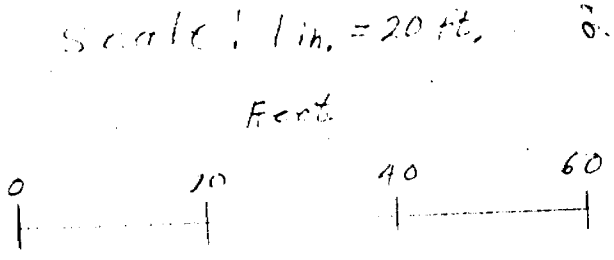 Scale: 1 in. = 20 ft.
Feet
0 20 40 60